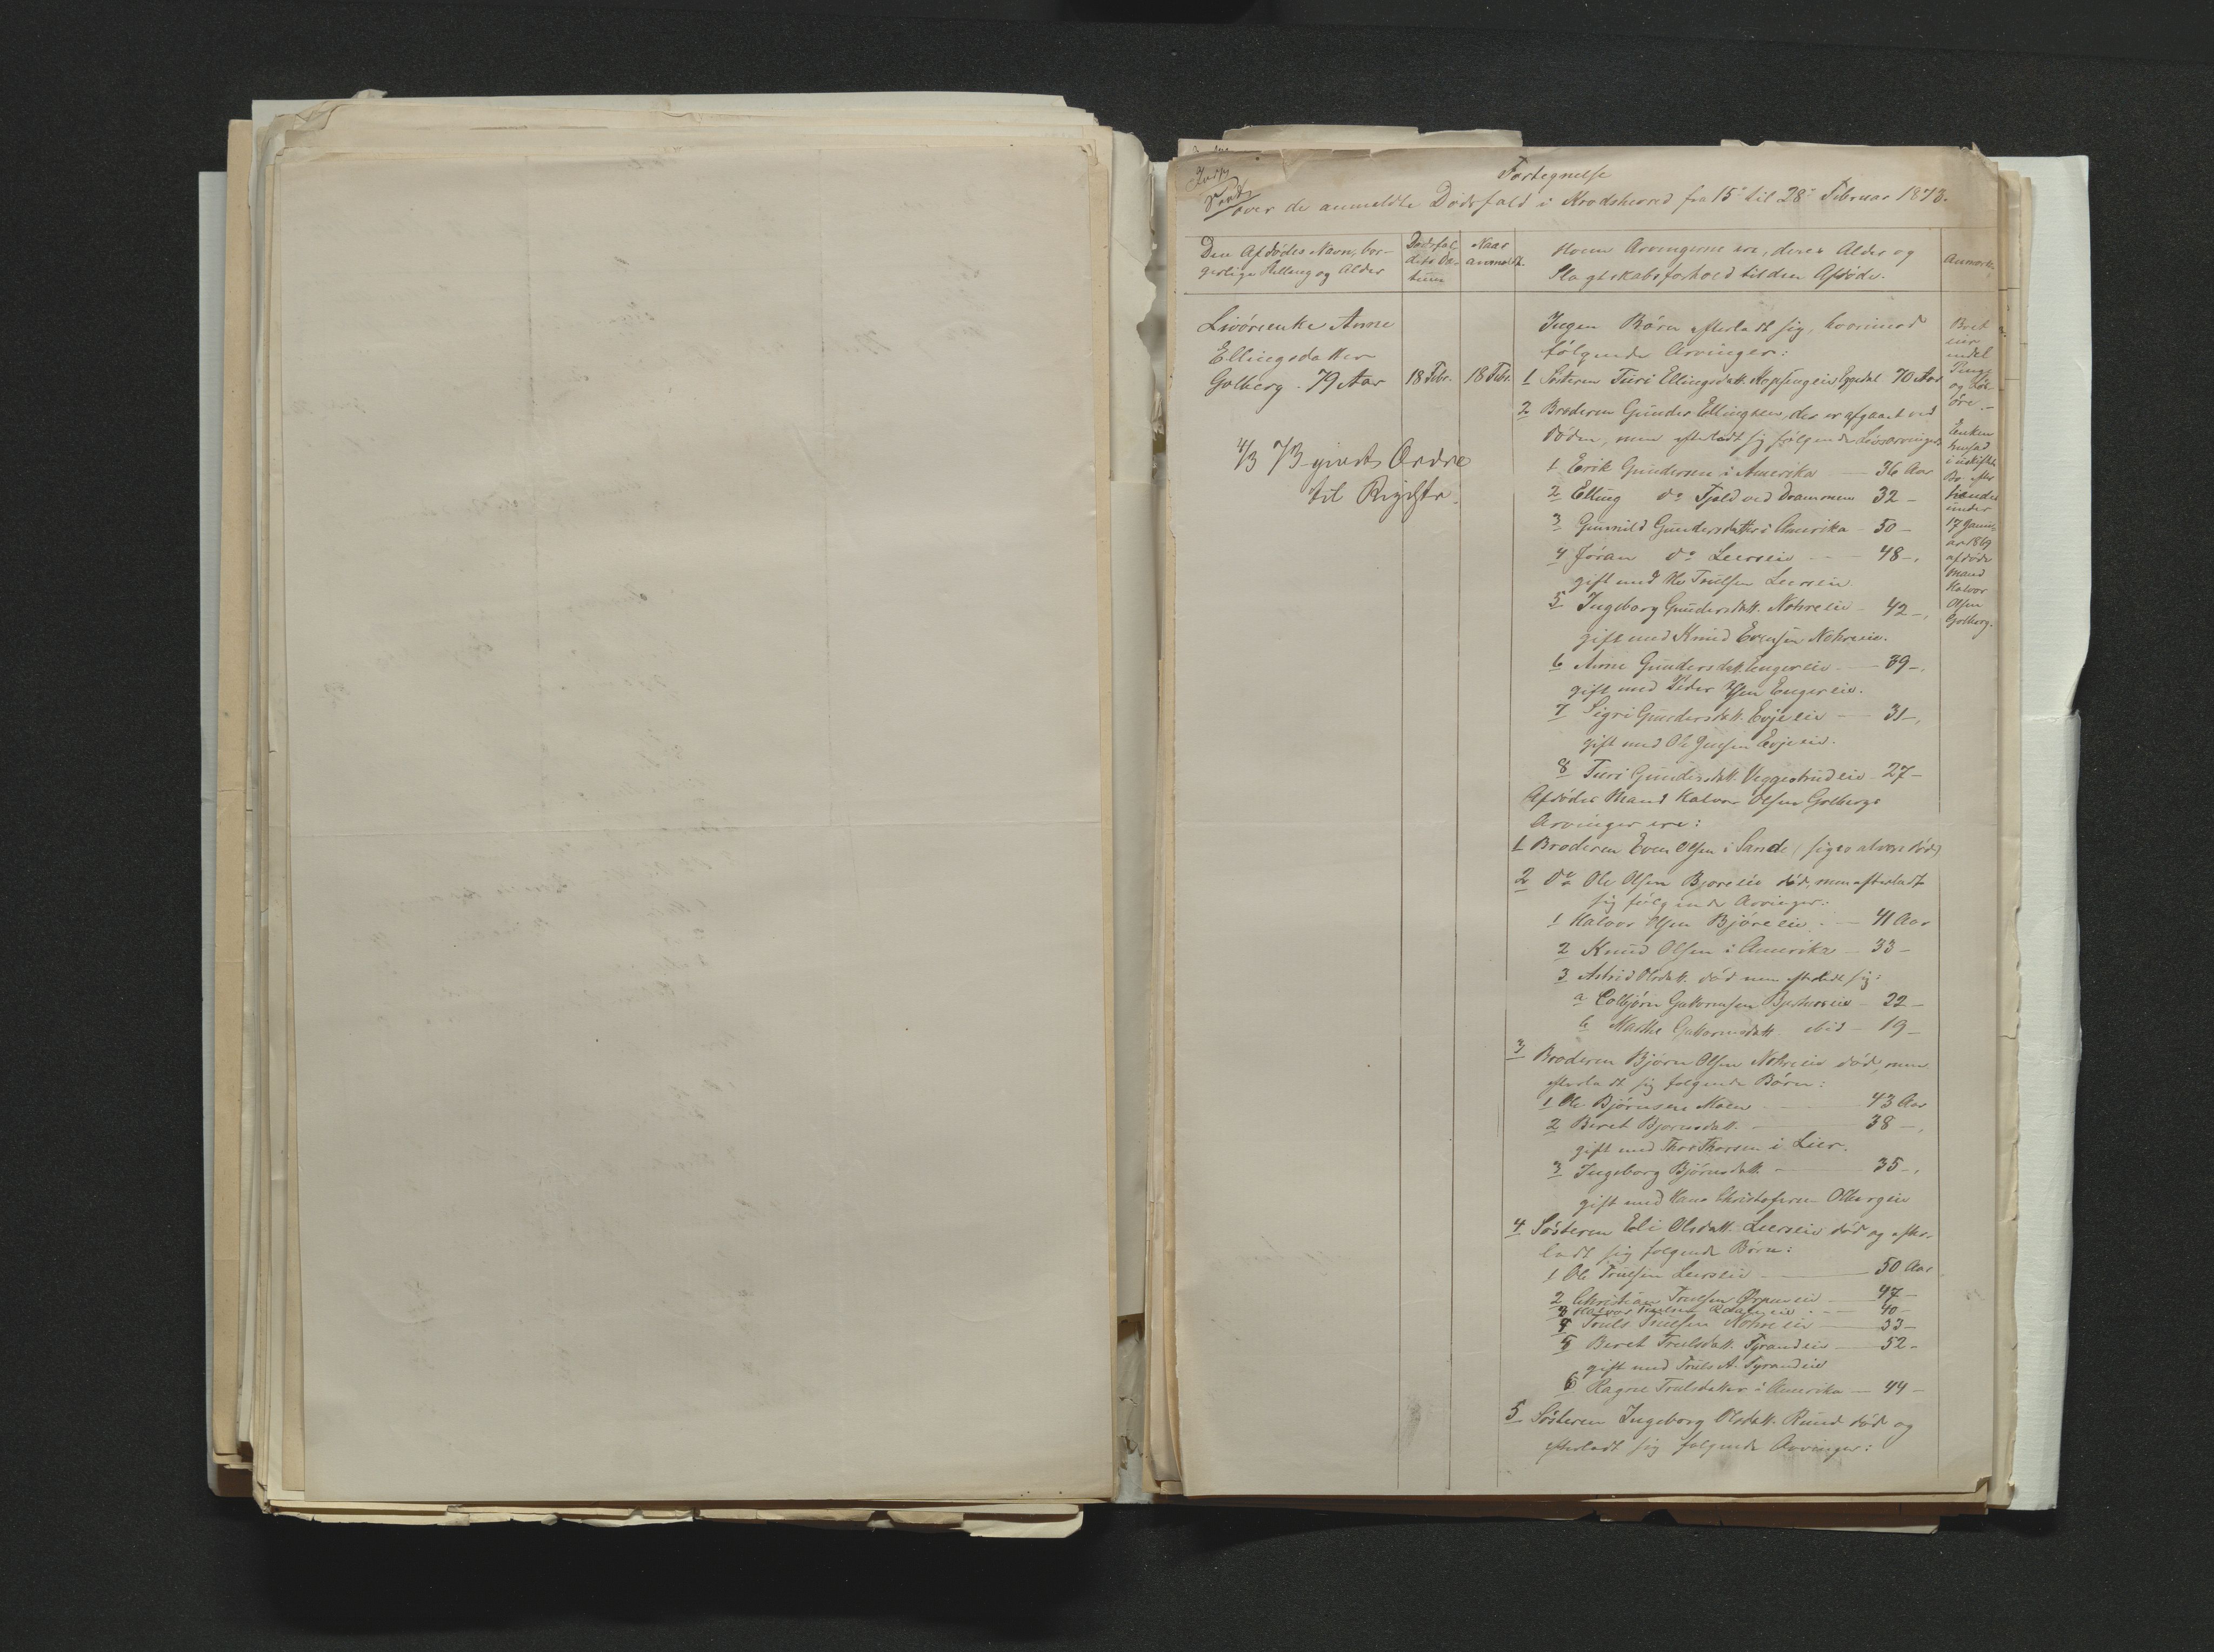 Fortegnelse
over de anmeldte Dødsfald i Krødsherred fra 15de til 28de Februar 1873.
Den Afdødes Navn, bor-
gerlige Stilling og Alder
Dødsfal-
dets Da-
tum
Naar
anmeldt.
Hvem Arvingerne ere, deres Alder og
Slagtskabsforhold til den Afdøde.
Anmærk.
Livørenke Anne
Ellingsdatter
Golberg. 79 Aar
18 Febr.
18 Febr.
4/3 73 givet Ordre
til Registr.
Ingen Børn efterladt sig, hvorimod
følgende Arvinger:
1 Søsteren Turi Ellingsdatt. Eggedal 70 Aar
2 Broderen Gunder Ellingsen, der er afgaaet ved
Døden, men efterladt sig følgende Livsarvinger
1 Erik Gundersen i Amerika — 36 Aar
2 Elling do Fjeld ved Drammen 32 —
3 Gunnild Gundersdatter i Amerika — 50 —
4 Jøran do Leerseie — 48 —,
gift med Ole Trulsen Leerseie
5 Ingeborg Gundersdatt. Nohreeie — 42 —,
gift med Knud Evensen Nohreeie.
6 Anne Gundersdatt. Engereie — 39 —,
gift med Peder Engereie.
7 Sigri Gundersdatt. Evjeeie — 31 —,
gift med Ole Evjeeie.
8 Turi Gundersdatt. Veggestrudeie — 27 —
Afdødes Mand Halvor Olsen Golbergs
Arvinger ere:
1 Broderen Even Olsen i Sande (siges at være død)
2 do Ole Olsen Bjøreeie død, men efterladt
sig følgende Arvinger:
1 Halvor Olsen Bjøreeie — 41 Aar
2 Knud Olsen i Amerika — 33 —
3 Astrid Olsdatt. død men efterladt sig:
a Colbjørn Guttormsen — 22 —
b Marthe Guttormsdatt. ibid — 19 —
3 Broderen Bjørn Olsen Nohreeie død, men
efterladt sig følgende Børn:
1 Ole Bjørnsen Moen — 43 Aar
2 Beret Bjørnsdatt. — 38 —,
gift med Thor Thorsen i Lier.
3 Ingeborg Bjørnsdatt. — 35 —,
gift med Hans Christofersen Olbergeie
4 Søsteren Eli Olsdatt. Leerseie død og efter-
ladt sig følgende Børn:
1 Ole Trulsen Leerseie — 50 Aar
2 Christian Trulsen Ørpeneie — 47 —
3 Halvor Trulsen — 40 —
4 Truls Trulsen Nohreeie — 33 —
5 Beret Trulsdatt. Fyrandeie — 52 —
gift med Truls A. Fyrandeie
6 Ragne Trulsdatter i Amerika — 44 —
5 Søsteren Ingeborg Olsdatt. Ruud død og
efterladt sig følgende Arvinger:
endel
Penge
og Løs-
øre. —
Enken
hensad
i uskiftet
Bo efter
hendes
under
17 Janu-
ar 1869
afdøde
Mand
Halvor
Olsen
Golberg.